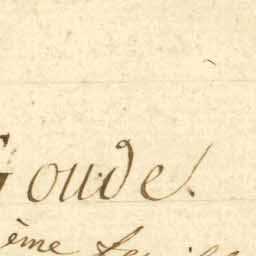 Goude.
ème